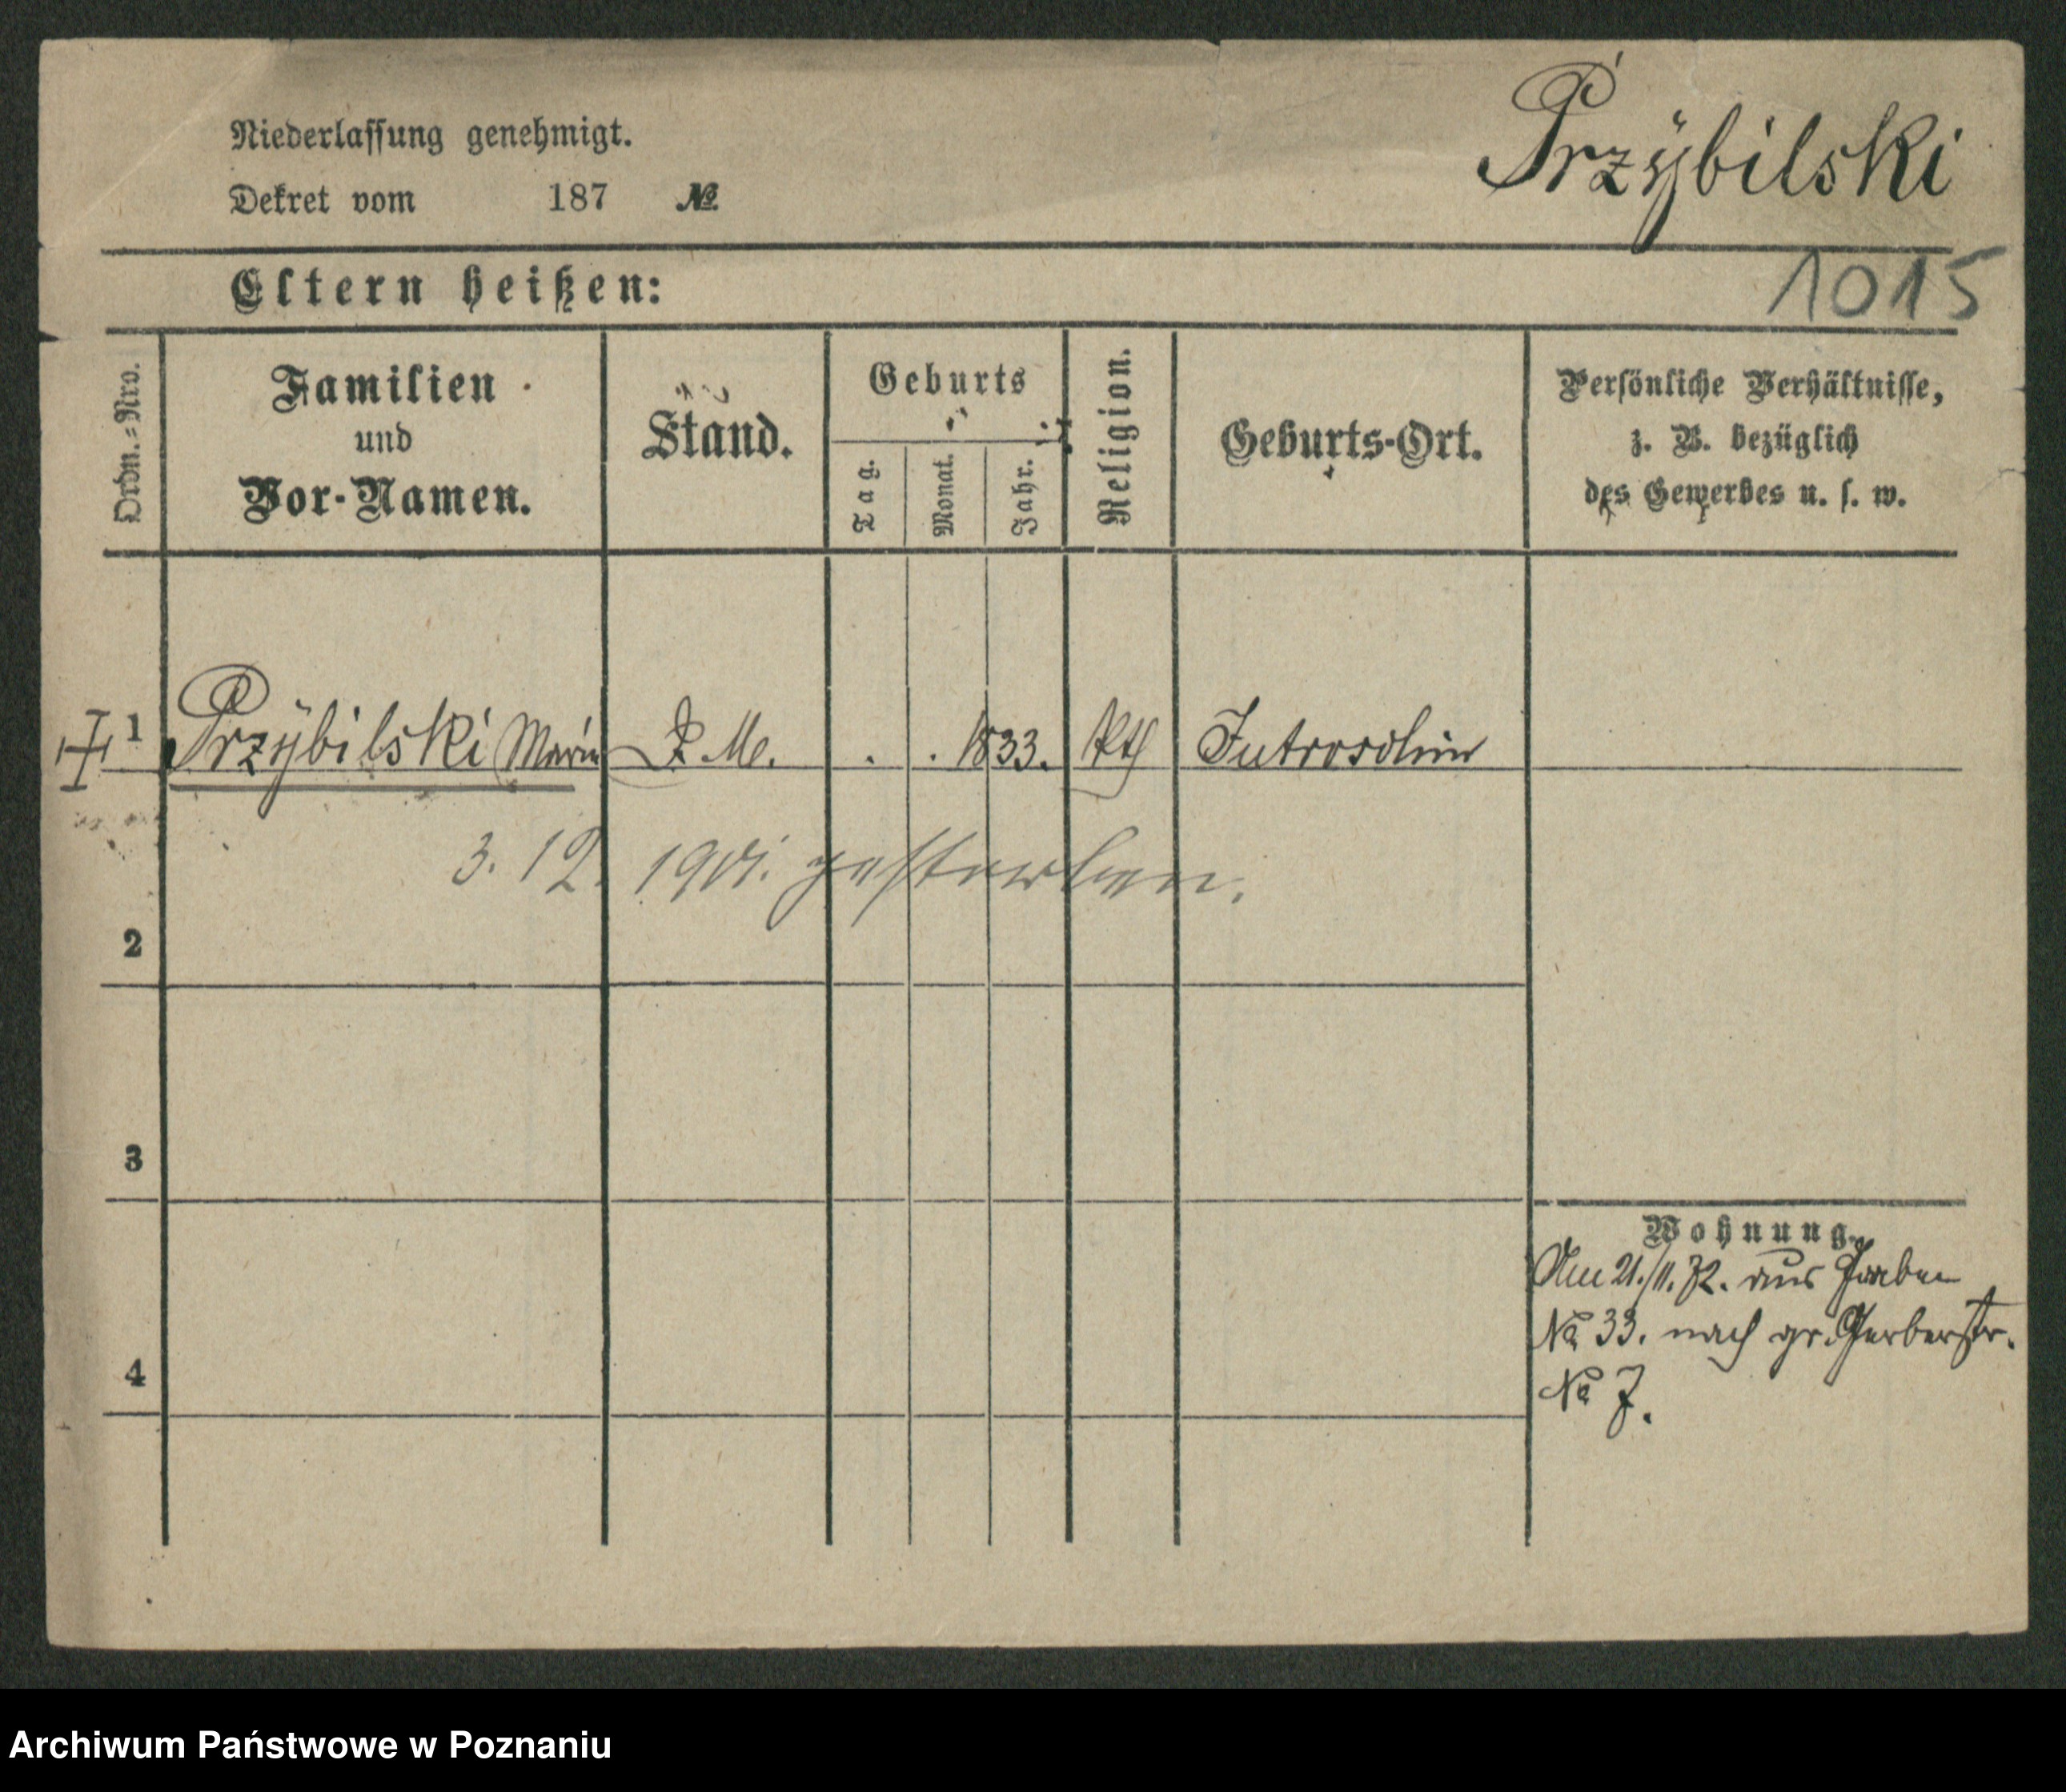 Niederlassung genehmigt.
Dekret vom 187 №
Przÿbilski
Eltern heißen:
1015
Ordn.-Nro.
Familien
und
Vor-Namen.
Stand.
Geburts
Tag.
Monat.
Jahr.
Religion.
Geburts-Ort.
Persönliche Verhältnisse,
z. B. bezüglich
des Gewerbes u. s. w.
1 Przÿbilski Marie D. M. . . 1833. kth Jutroschin
3. 12. 1901. gestorben.
2
3
4
Wohnung.
Am 21./11.72. aus Graben
No 33. nach gr. Gerberstr.
No 7.
Archiwum Państwowe w Poznaniu